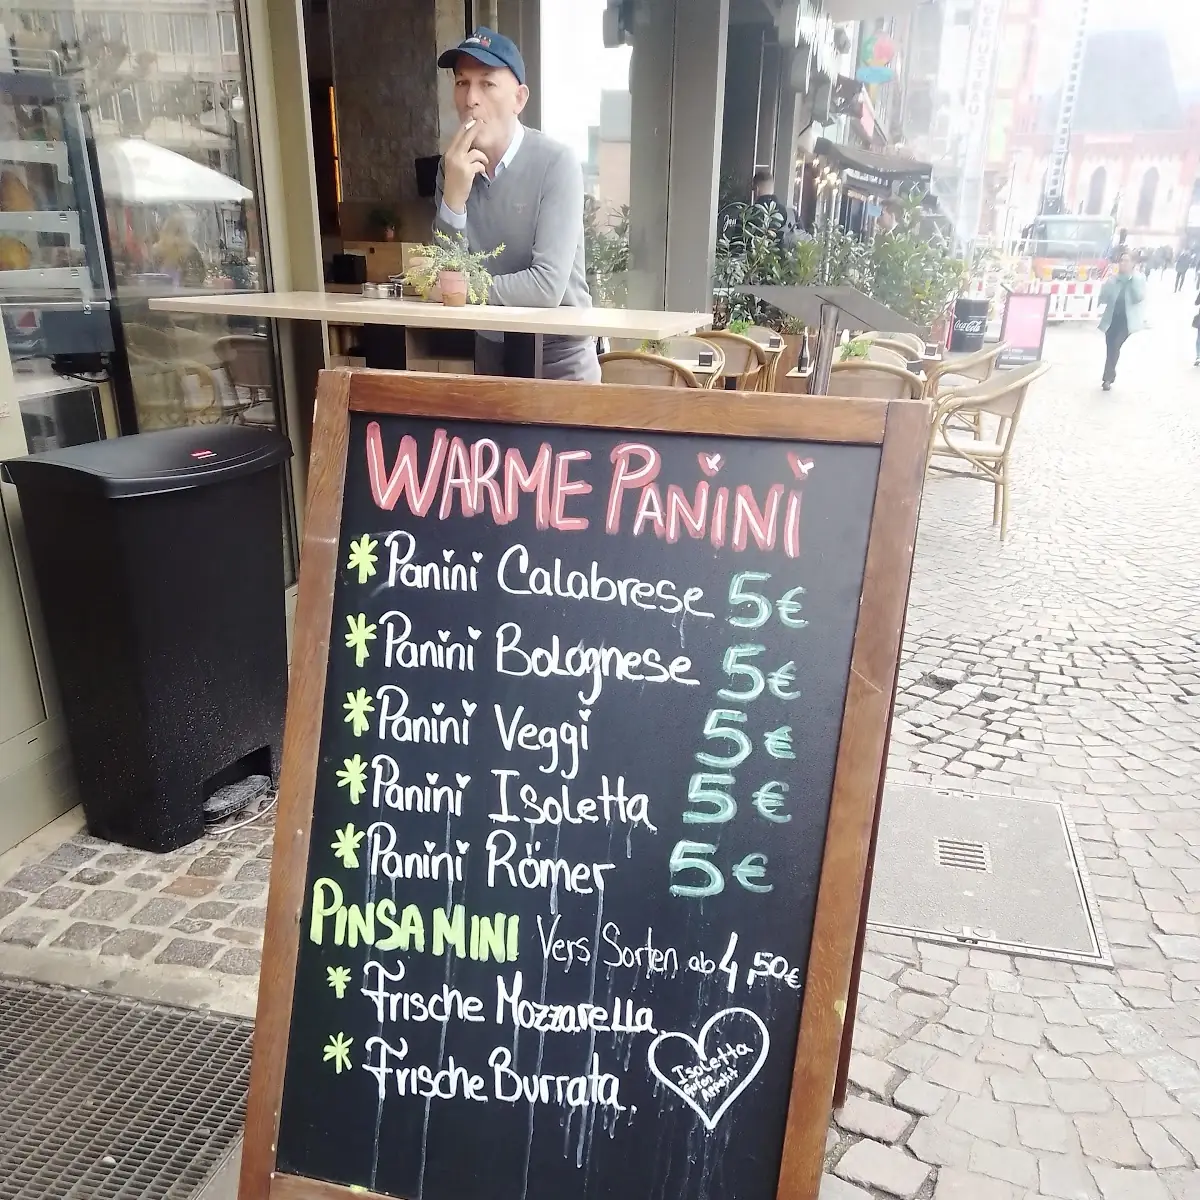 WARME PANINI
* Panini Calabrese 5€
* Panini Bolognese 5€
* Panini Veggi 5€
* Panini Isoletta 5€
* Panini Römer 5€
PINSA MINI Vers Sorten ab 4,50€
* Frische Mozzarella.
* Frische Burrata.
Isoletta
Guten
Appetit
Coca-Cola